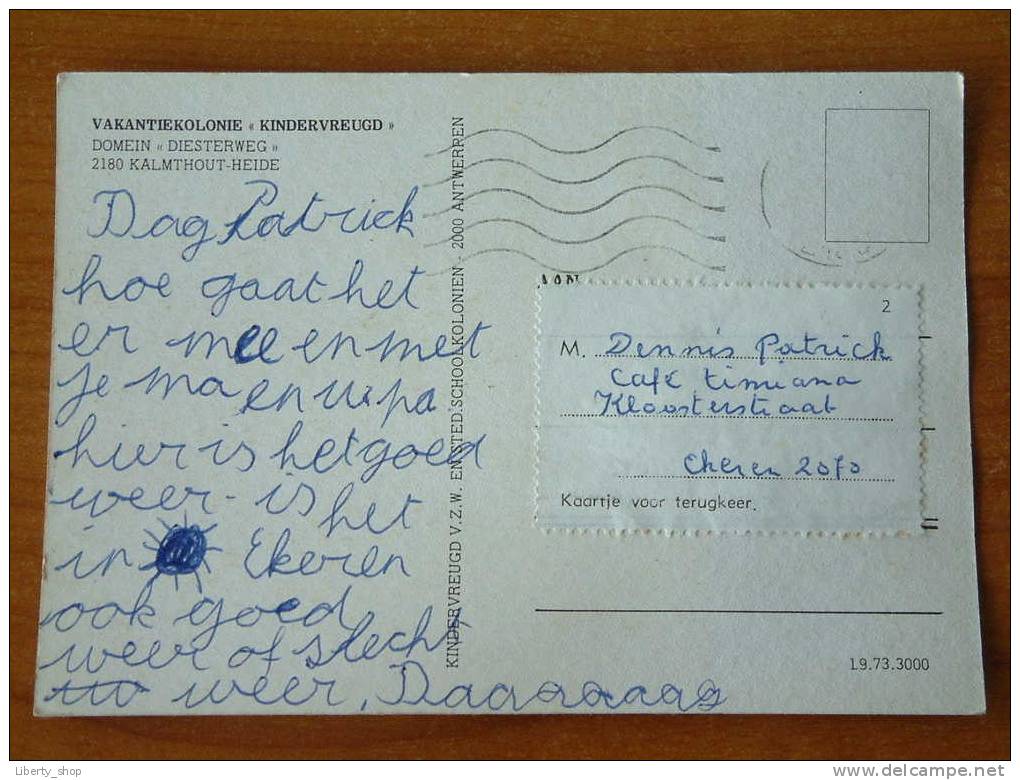 VAKANTIEKOLONIE « KINDERVREUGD »
DOMEIN « DIESTERWEG »
2180 KALMTHOUT-HEIDE
Dag Patrick
hoe gaat het
er mee en met
je ma en pa
hier is het goed
weer - is het
in Ekeren
ook goed
weer of slecht
weer, Daaaaaag
KINDERVREUGD V.Z.W. EN STED. SCHOOLKOLONIEN - 2000 ANTWERPEN
AAN
2
M. Dennis Patrick
Café timiana
Kloosterstraat
Ekeren 2070
Kaartje voor terugkeer.
19.73.3000
Liberty_shop
delcampe.net